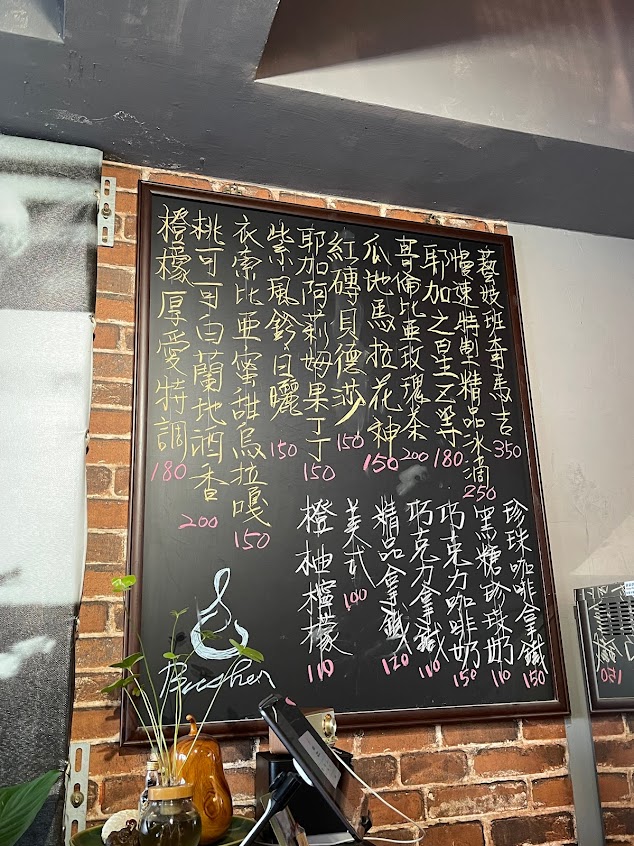 藝妓班奇馬吉 350
慢速特制精品冰滴 250
耶加之皇工等 180
哥倫比亞玫瑰茶 200
瓜地馬拉花神 150
紅磚貝德莎 150
耶加阿莉姆果丁丁 150
紫風鈴日曬 150
衣索比亞蜜甜烏拉嘎 150
桃可可白蘭地酒香 200
橙檬厚愛特調 180
珍珠咖啡拿鐵 150
黑糖珍珠奶 110
巧克力咖啡奶 150
巧克力拿鐵 110
精品拿鐵 120
美式 100
橙柚檸檬 110
150